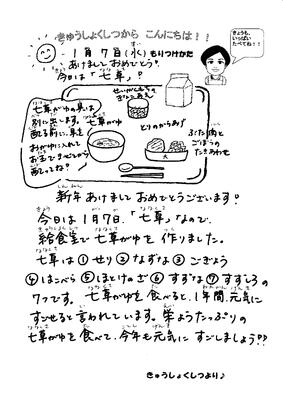 きゅうしょくしつから こんにちは！！
きょうも、
いっぱい
たべてね！！
1月7日(水)もりつけかた
あけましておめでとう。
今日は「七草」？
せいがんどうふの
七草がゆの具は
別に出ます。七草がゆ
おかゆに入れて
とりのからあげ
ぶた肉と
ごぼうの
新年あけましておめでとうございます！
今日は1月7日.「七草」なので、
給食室で七草がゆを作りました。
七草は①せり ②なずな ③ごぎょう
④はこべら ⑤ほとけのざ ⑥すずな ⑦すずしろ
の7つです。七草がゆを食べると、1年間、元気に
すごせると言われています。栄ようたっぷりの
七草がゆを食べて、今年も元気にすごしましょう!!
きゅうしょくしつより♪